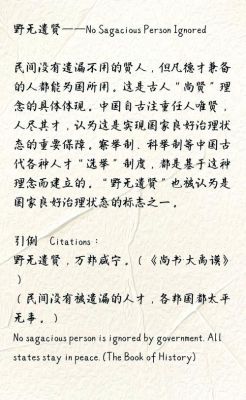 野无遗贤——No Sagacious Person Ignored
民间没有遗漏不用的贤人，但凡德才兼备
的人都能为国所用。这是古人“尚贤”理
念的具体体现。中国自古注重任人唯贤，
人尽其才，认为这是实现国家良好治理状
态的重要保障。察举制、科举制等中国古
代各种人才“选举”制度，都是基于这种
理念而建立的。“野无遗贤”也被认为是
国家良好治理状态的标志之一。
引例 Citations：
野无遗贤，万邦咸宁。（《尚书·大禹谟》
）
（民间没有被遗漏的人才，各邦国都太平
无事。）
No sagacious person is ignored by government. All
states stay in peace. (The Book of History)